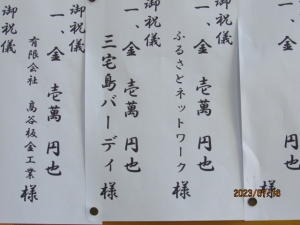 一、金 壱萬 円也
御祝儀
一、金 壱萬 円也
ふるさとネットワーク 様
御祝儀
一、金 壱萬 円也
三宅島バーディ 様
御祝儀
一、金 壱萬 円也
有限会社 高谷板金工業 様